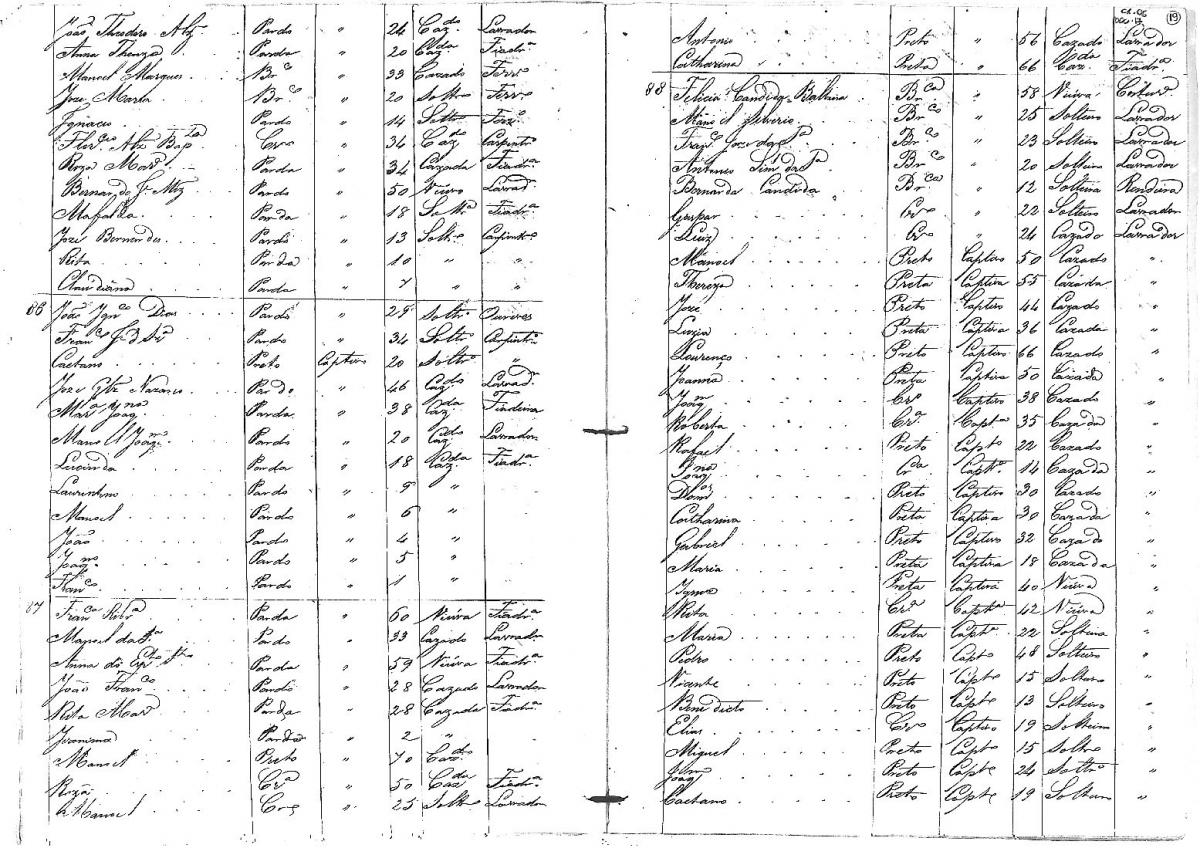 João Theodoro Alz Pardo " 24 Caz.do Lavrador
Anna Thereza Parda " 20 Caz.da Fiadr.a
Manoel Marques Br.co " 33 Cazado Ferr.o
Joze Maria Br.co " 20 Soltr.o Ferr.o
Ignacio Pardo " 14 Soltr.o
Flor.co Alz Cr.o " 34 Caz.do Carpintr.o
Roza Mar.a Parda " 34 Cazada Fiadr.a
Bernardo Pardo " 50 Viuvo Lavrad.r
Mafalda Parda " 18 Soltr.a Fiadr.a
Joze Bernardes Pardo " 13 Soltr.o Carpintr.o
Rita Parda " 10 " "
Claudiana Parda " 7 " "
86 João Ign.co Dias Pardo " 25 Soltr.o Ourives
Fran.co Pardo " 34 Soltr.o Carpintr.o
Caetano Preto Captivo 20 Soltr.o "
Joze Nazareo Pardo " 46 Caz.do Lavrad.or
Mar.a Joaq.na Parda " 38 Caz.da Fiadeira
Mano.el Joaq.m Pardo " 20 Caz.do Lavrador
Lucinda Parda " 18 Caz.da Fiadr.a
Laurentino Pardo " 9 "
Manoel Pardo " 6 "
João Pardo " 4 "
Joaq.m Pardo " 5 "
Fran.co Pardo " 1 "
87 Fran.ca Ribr.a Parda " 60 Viuva Fiadr.a
Manoel da S.a Pardo " 33 Cazado Lavrador
Anna do Esp.to S.to Parda " 59 Viuva Fiadr.a
João Fran.co Pardo " 28 Cazado Lavrador
Rita Mar.a Parda " 28 Cazada Fiadr.a
Parda " 2 "
Manoel Preto " 70 Caz.do
Roza Cr.a " 50 Caz.da Fiadr.a
Manoel Cr.o " 25 Soltr.o Lavrador
19
Antonio Preto " 56 Cazado Lavrador
Catharina Preta " 66 Caz.da Fiadr.a
88 Felicia Candida Balbina Br.ca " 58 Viuva
Man.oel Silverio Br.co " 25 Solteiro Lavrador
Fran.co Joze da S.a Br.co " 23 Solteiro Lavrador
Antonio Br.co " 20 Solteiro Lavrador
Bernarda Candida Br.ca " 12 Solteira Rendeira
Gaspar Cr.o " 22 Solteiro Lavrador
Luiz Cr.o " 24 Cazado Lavrador
Manoel Preto Captivo 50 Cazado
Thereza Preta Captiva 55 Cazada "
Joze Preto Captivo 44 Cazado "
Luzia Preta Captiva 36 Cazada "
Lourenço Preto Captivo 66 Cazado "
Joanna Preta Captiva 50 Cazada "
Joaq.m Cr.o Captivo 38 Cazado "
Roberta Cr.a Capt.a 35 Cazada "
Rafael Preto Capt.o 22 Cazado "
Joaq.na Cr.a Capt.a 14 Cazada "
Dom.os Preto Captivo 30 Cazado "
Catharina Preta Captiva 30 Cazada "
Gabriel Preto Captivo 32 Cazado "
Maria Preta Captiva 18 Cazada "
Preta Captiva 40 Viuva "
Rita Cr.a Capt.a 42 Viuva "
Maria Preta Capt.a 22 Solteira "
Pedro Preto Capt.o 48 Solteiro "
Vicente Preto Capt.o 15 Solteiro "
Benedicto Preto Capt.o 13 Solteiro "
Elias Cr.o Captivo 19 Solteiro "
Miguel Preto Capt.o 15 Soltr.o "
Joaq.m Preto Capt.o 24 Soltr.o "
Caetano Preto Capt.o 19 Solteiro "